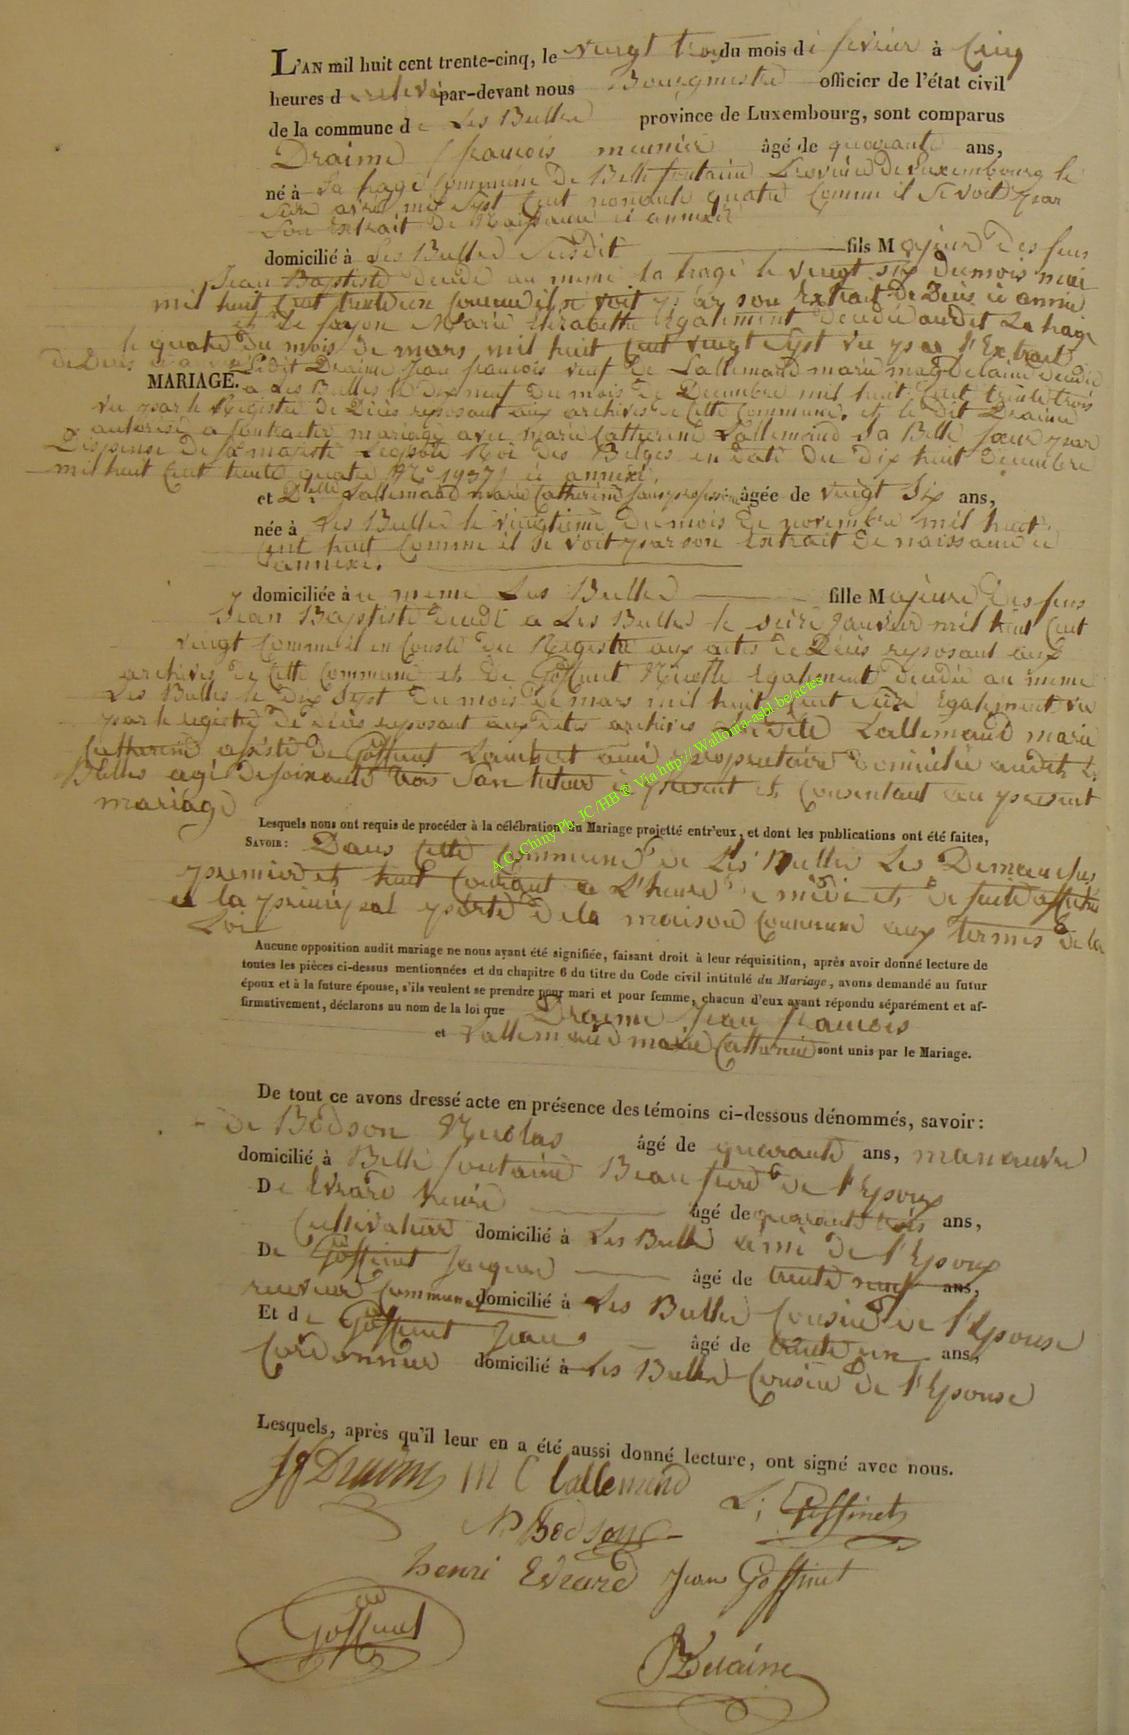 L'AN mil huit cent trente-cinq, le vingt trois du mois de fevrier à Cinq
heures d relevé par-devant nous Bourgmestre officier de l'état civil
de la commune de Les Bulles province de Luxembourg, sont comparus
Draime J françois meunier âgé de quarante ans,
né à La hage Commune de Belle fontaine Province de Luxembourg le
Seize avril mil Sept Cent nonante quatre Comme il Se voit par
Son Extrait de Naissance ci annexé
domicilié à Les Bulles Susdit fils Majeur des feus
Jean Baptiste décédé au meme la hage le vingt six du mois mai
mil huit Cent trente un Comme il se voit par son Extrait de Décès ci annexé
et de fayon Marie Elisabeth Egalement décédée audit La hage
le quatre du mois de mars mil huit Cent vingt Sept vu par l'Extrait
de Décès ci annexé Ledit Draime Jean françois veuf de Lallemand marie magdelaine décédée
MARIAGE. à Les Bulles le dix neuf du mois de Decembre mil huit Cent trente trois
vu par le Registre de Décès reposant aux archives de Cette Commune, et le dit Draime
autorisé a Contracter mariage avec marie Catherine Lallemand Sa Belle Soeur par
Dispense de Sa majesté Leopold Roi des Belges en date du dix huit decembre
mil huit Cent trente quatre N° 1937 ci annexé
et Dlle Lallemand Marie Catherine Sans profession âgée de vingt Six ans,
née à Les Bulles le vingtieme du mois de novembre mil huit
Cent huit Comme il se voit par son Extrait de naissance ci
annexé.
domiciliée à au meme Les Bulles fille Majeure des feus
Jean Baptiste décédé a Les Bulles le seize Janvier mil huit Cent
vingt Comme il en Conste du Registre aux actes de Décès reposant aux
archives de Cette Commune et de Goffinet Nicolle Egalement decedée au meme
Les Bulles le Dix Sept du mois de mars mil huit Cent Seize Egalement vu
par le registre de décès reposant aux dites archives Ladite Lallemand marie
Catherine assistée de Goffinet Lambert ami propriétaire domicilié audit Les
Bulles agé de soixante trois Son tuteur ci present et Consentant au present
mariage
Lesquels nous ont requis de procéder à la célébration du Mariage projetté entr'eux, et dont les publications ont été faites,
SAVOIR: Dans Cette Commune de Les Bulles Les Dimanches
premier et huit Courant a L'heure de midi et de suite affichées
a la principal porte de la maison Commune aux termes de la
Loi
Aucune opposition audit mariage ne nous ayant été signifiée, faisant droit à leur réquisition, après avoir donné lecture de
toutes les pièces ci-dessus mentionnées et du chapitre 6 du titre du Code civil intitulé du Mariage, avons demandé au futur
époux et à la future épouse, s'ils veulent se prendre pour mari et pour femme, chacun d'eux ayant répondu séparément et af-
firmativement, déclarons au nom de la loi que Draime Jean francois
et Lallemand marie Catherine sont unis par le Mariage.
De tout ce avons dressé acte en présence des témoins ci-dessous dénommés, savoir:
de Bodson Nicolas âgé de quarante ans, manoeuvre
domicilié à Belle fontaine Beau frere de l'Epoux
De Evrard henri âgé de quarante trois ans,
Cultivateur domicilié à Les Bulles ami de l'Epoux
De Goffinet Jacques âgé de trente neuf ans,
receveur Communal domicilié à Les Bulles Cousin de l'Epouse
Et de Goffinet Jean âgé de trente un ans,
Cordonnier domicilié à Les Bulles Cousin de l'Epouse
Lesquels, après qu'il leur en a été aussi donné lecture, ont signé avec nous.
Jf Draime M C Lallemand L; Goffinet
N Bodson
henri Evrard Jean Goffinet
Goffinet
Delaine
A C Chiny Ph. JC /HB @ Via http://Wallonia-asbl.be/actes